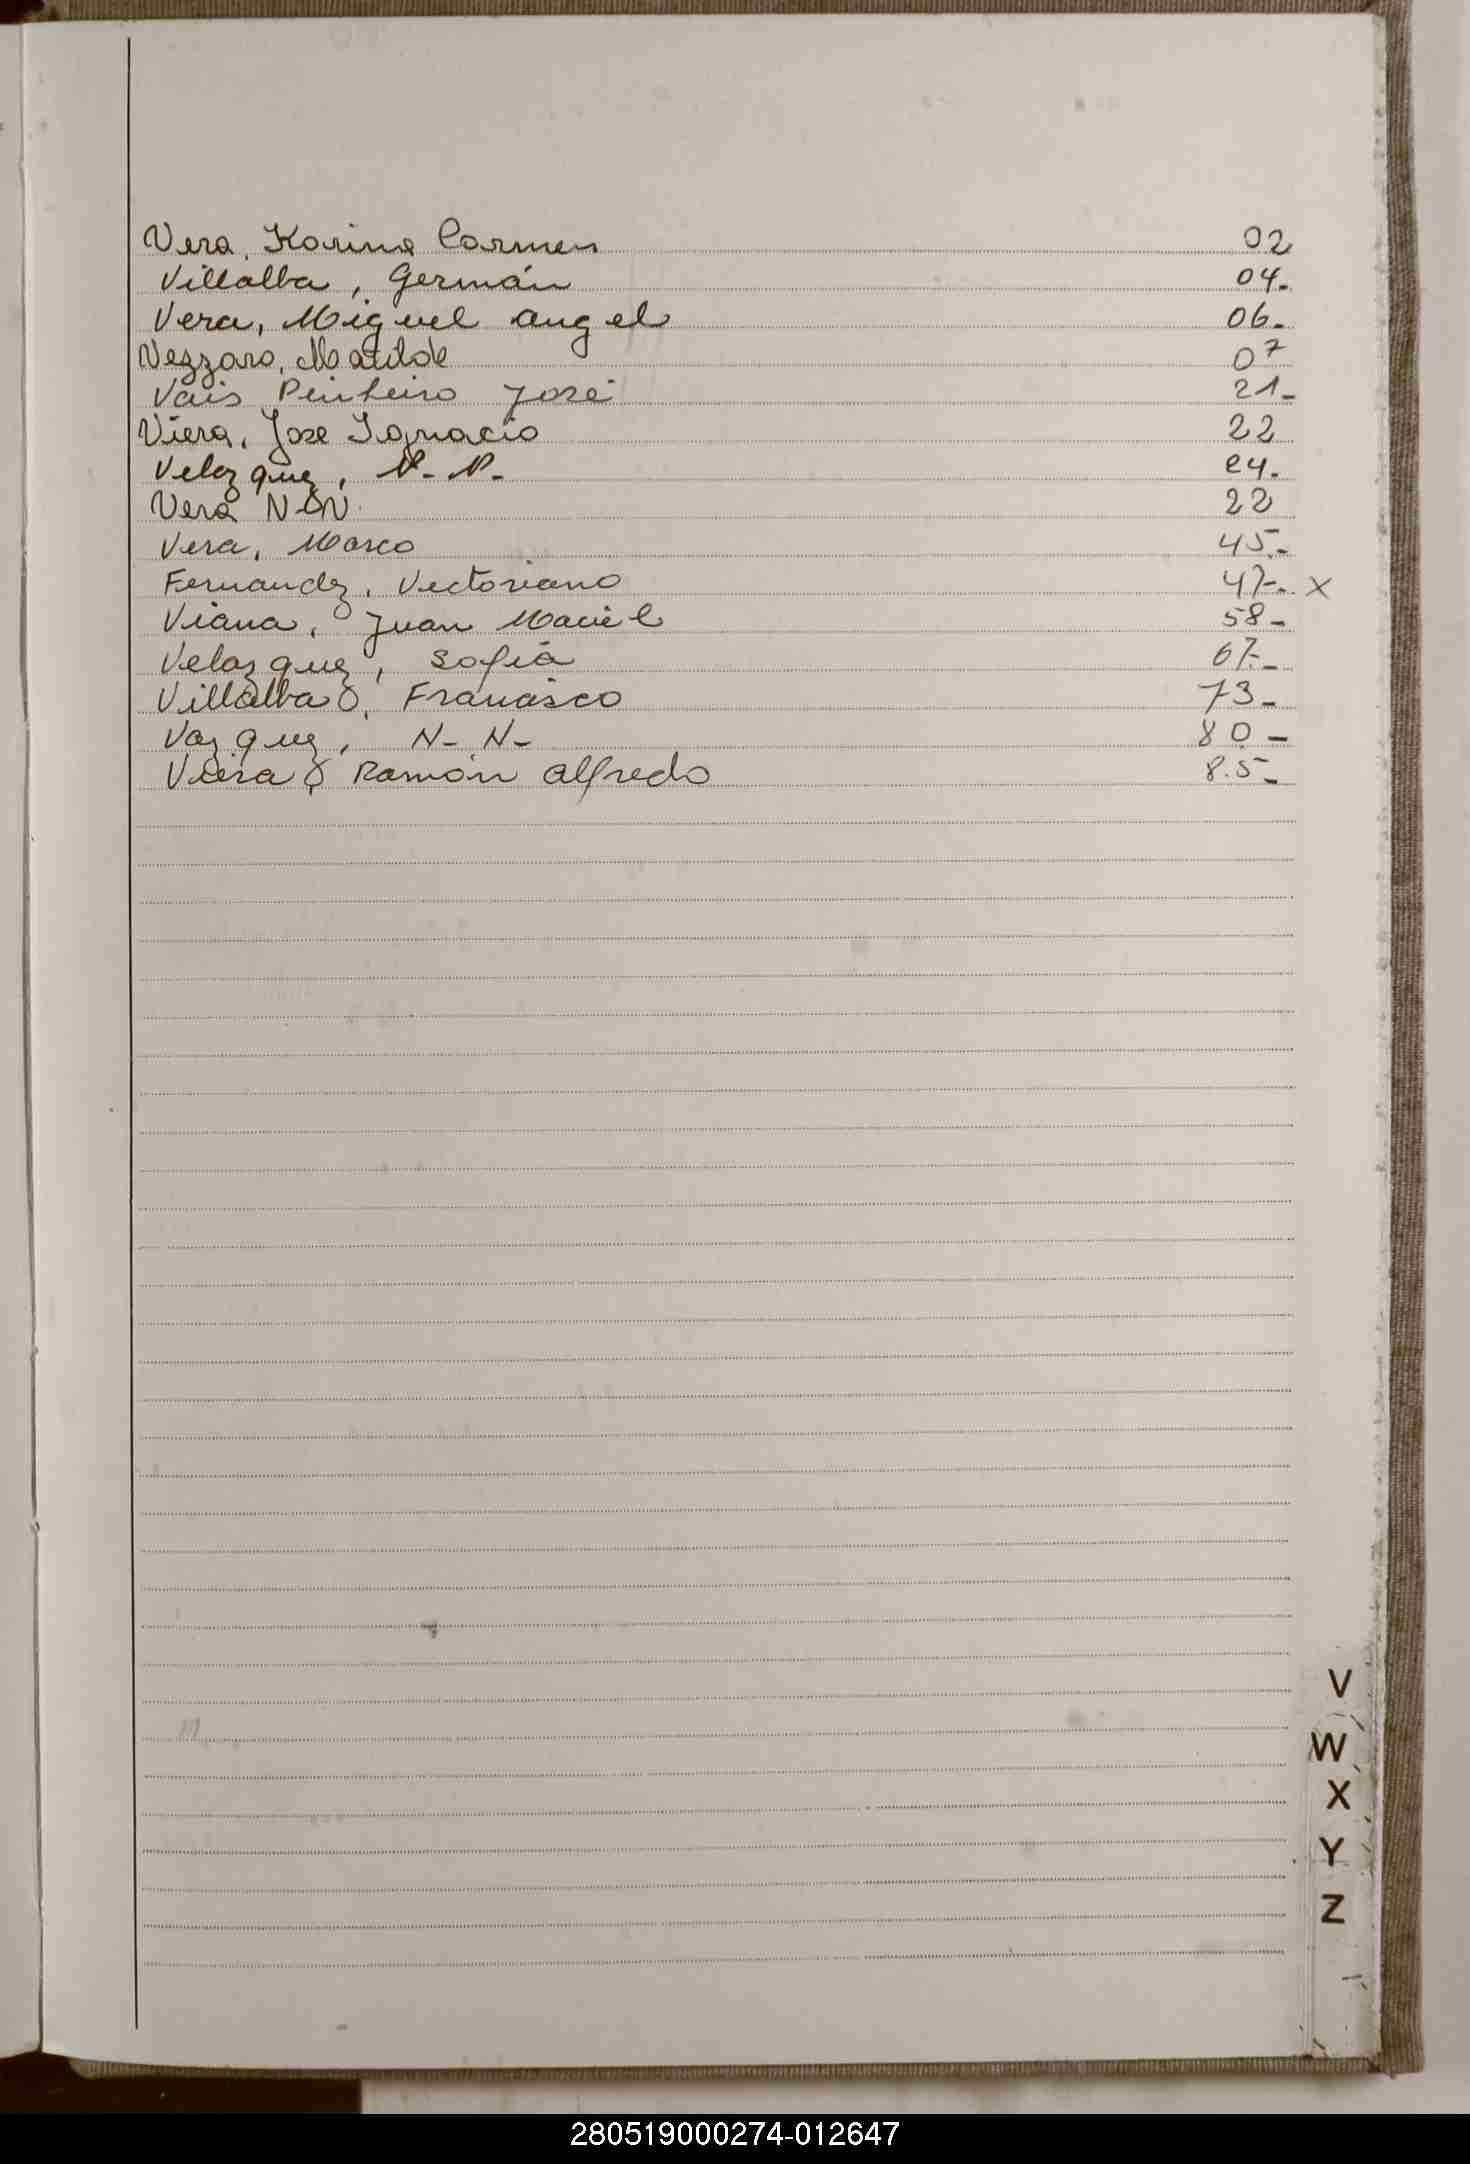 Vera, Karina Carmen 02
Villalba, Germán 04.
Vera, Miguel angel 06-
Vezzaro, Matilde 07
Vais Pinheiro José 21-
Viera, Jose Ignacio 22
Velazquez, N-N- 24.
Vera N-N 22
Vera, Marco 45.-
Fernandez, Victoriano 47-. x
Viana, Juan Maciel 58-
Velazquez, Sofiá 67.-
Villalba, Francisco 73-
Vazquez, N-N- 80-
Vieira, Ramón alfredo 85-
V
W
X
Y
Z
280519000274-012647